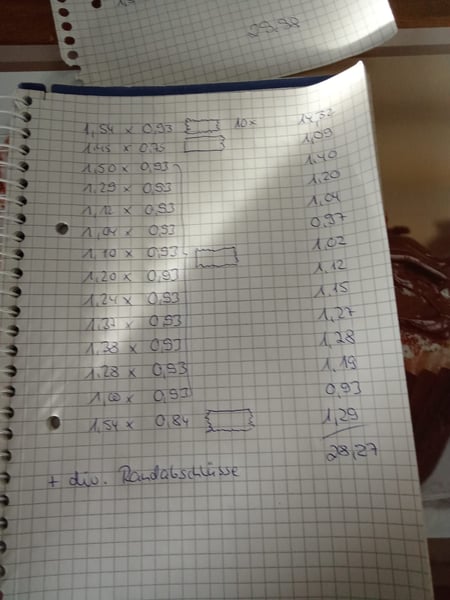 1,54 x 0,93 10x 14,32
1,45 x 0,75 1,09
1,50 x 0,93 1,40
1,29 x 0,93 1,20
1,12 x 0,93 1,04
1,04 x 0,93 0,97
1,10 x 0,93 1,02
1,20 x 0,93 1,12
1,24 x 0,93 1,15
1,37 x 0,93 1,27
1,38 x 0,93 1,28
1,28 x 0,93 1,19
1,00 x 0,93 0,93
1,54 x 0,84 1,29
28,27
+ div. Randabschlüsse